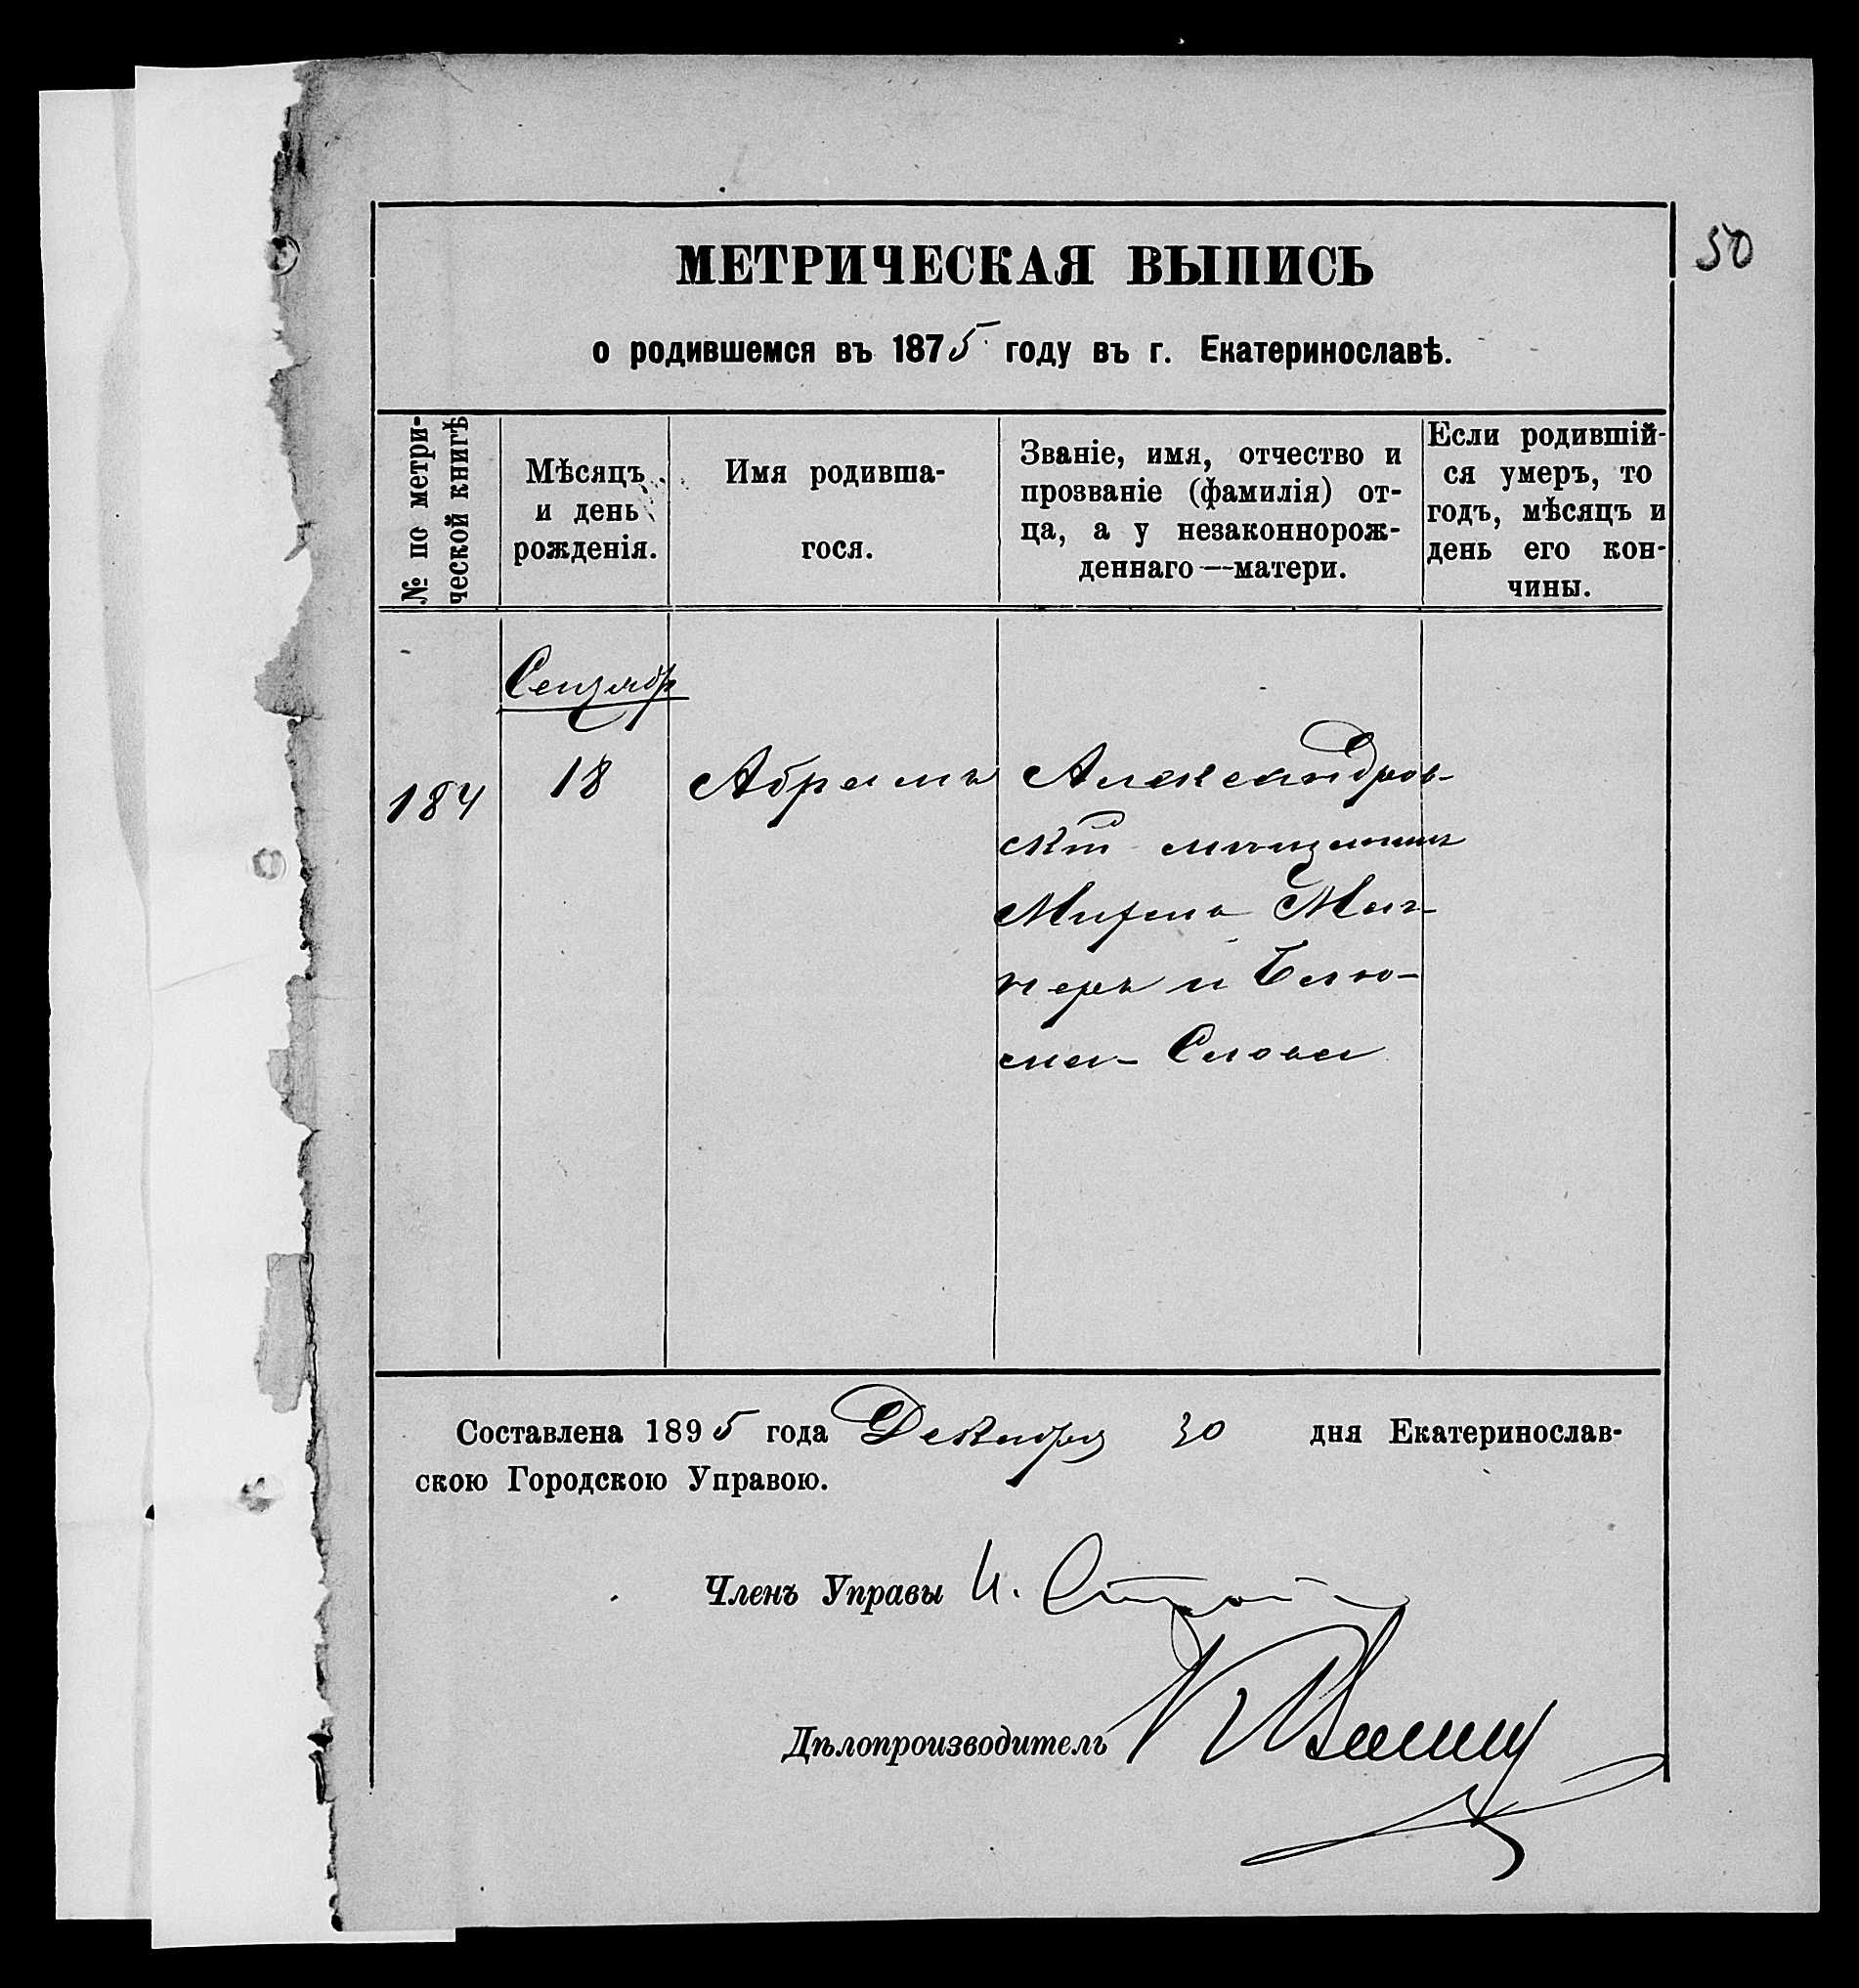 50
МЕТРИЧЕСКАЯ ВЫПИСЬ
о родившемся въ 1875 году въ г. Екатеринославѣ.
№ по метри-
ческой книгѣ
Мѣсяцъ
и день
рожденія.
Имя родивша-
гося.
Званіе, имя, отчество и
прозваніе (фамилія) от-
ца, а у незаконнорож-
деннаго—матери.
Если родившій-
ся умеръ, то
годъ, мѣсяцъ и
день его кон-
чины.
Сентябр
184
18
Абрамъ
Александров-
скій мѣщанинъ
и
Составлена 1895 года Декабря 30 дня Екатеринослав-
скою Городскою Управою.
Членъ Управы И.
Дѣлопроизводитель